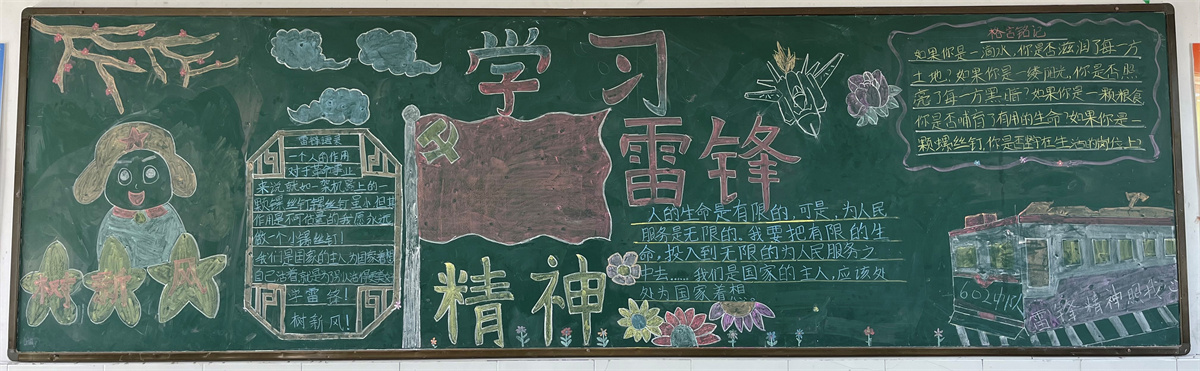 学习
雷锋
精神
树新风
雷锋语录
一个人的作用
对于革命事业
来说就如一架机器上的一
颗螺丝钉螺丝钉虽小但其
作用是不可估量的我愿永远
做一个小螺丝钉！
我们是国家的主人为国家着想
自己活着就是为了别人活得更美好
学雷锋！
树新风！
人的生命是有限的，可是，为人民
服务是无限的。我要把有限的生
命，投入到无限的为人民服务之
中去……我们是国家的主人，应该处
处为国家着想。
格言铭记
如果你是一滴水，你是否滋润了每一方
土地？如果你是一缕阳光，你是否照
亮了每一方黑暗？如果你是一颗粮食
你是否哺育了有用的生命？如果你是一
颗螺丝钉，你是否坚守在生活的岗位上？
6024
雷锋精神照我